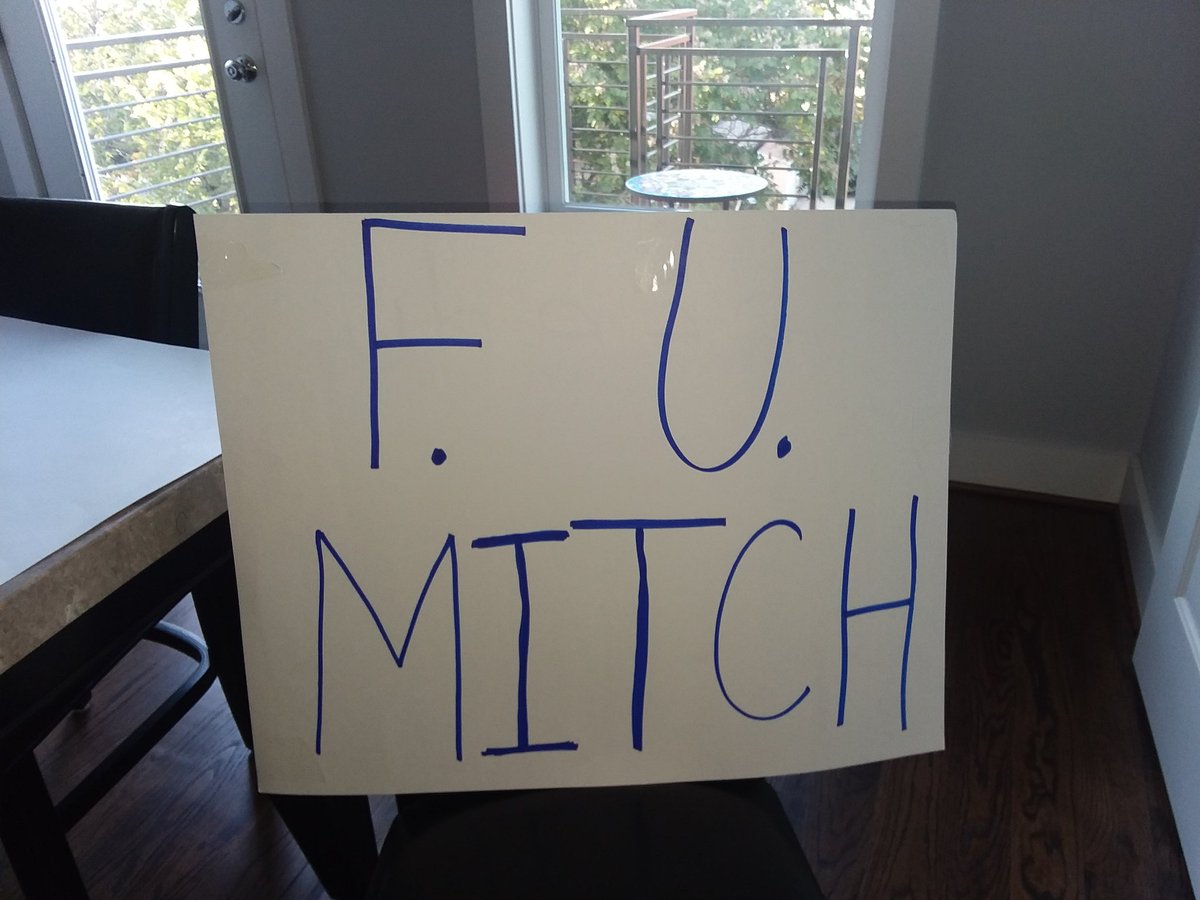 F. U.
MITCH